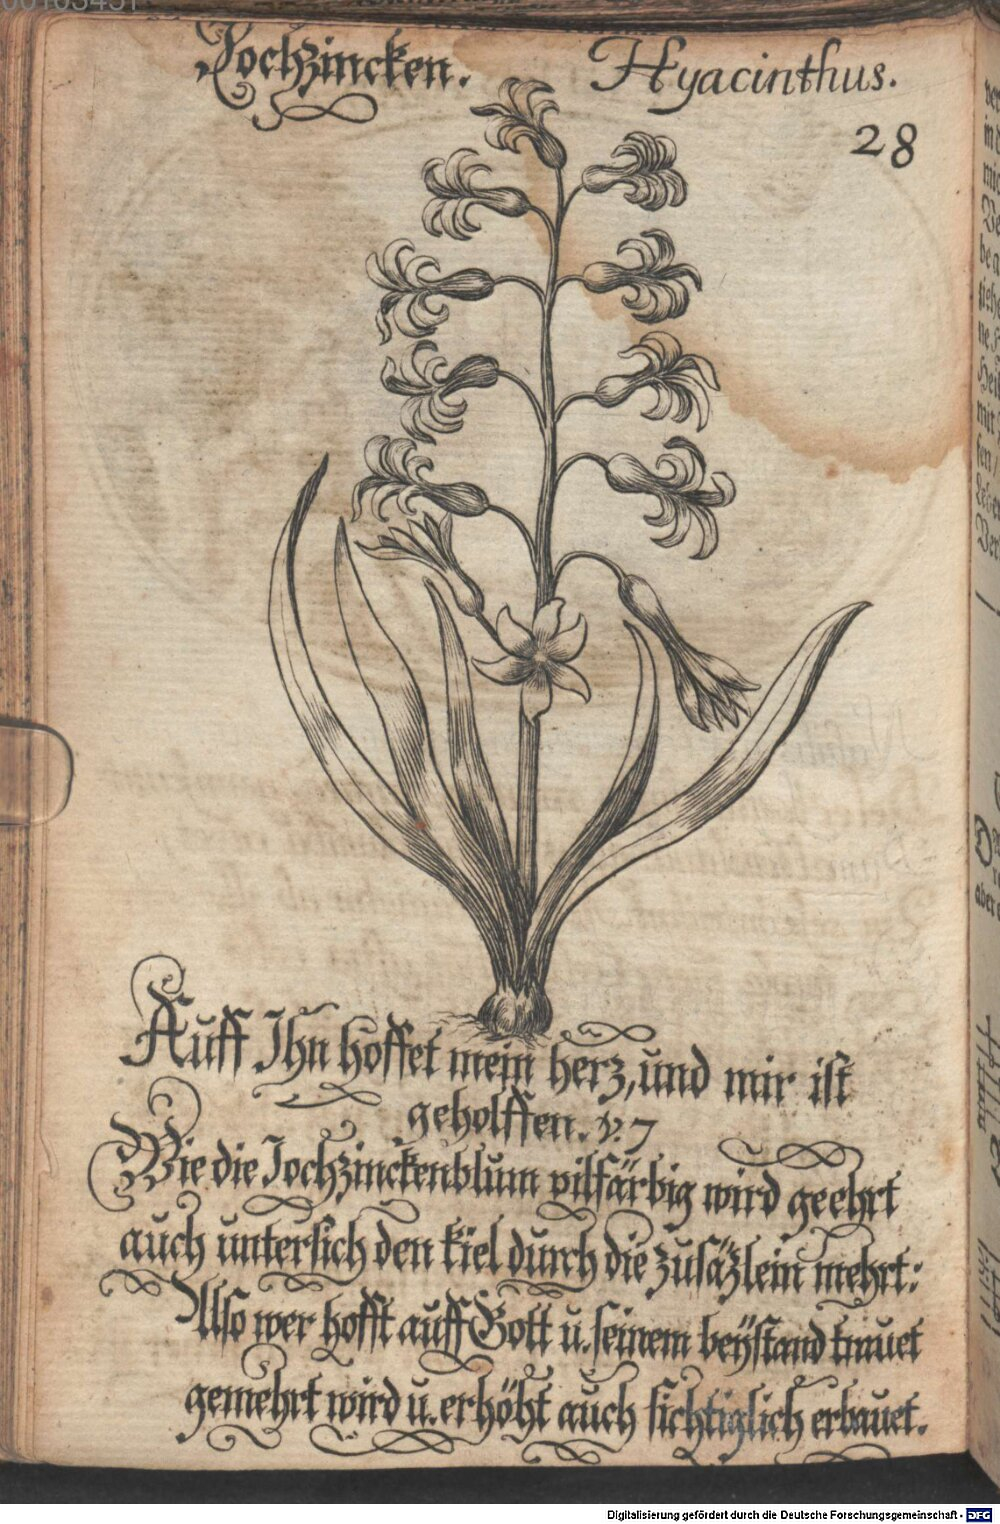 Jochzincken. Hyacinthus.
28
Auff Ihn hoffet mein herz, und mir ist
geholffen. v. 7
Wie die Jochzinckenblum vilfärbig wird geehrt
auch untersich den kiel durch die zusäzlein mehrt:
Also wer hofft auff Gott u. seinem beÿstand trauet
gemehrt wird u. erhöht auch sichtiglich erbauet.
Digitalisierung gefördert durch die Deutsche Forschungsgemeinschaft - DFG